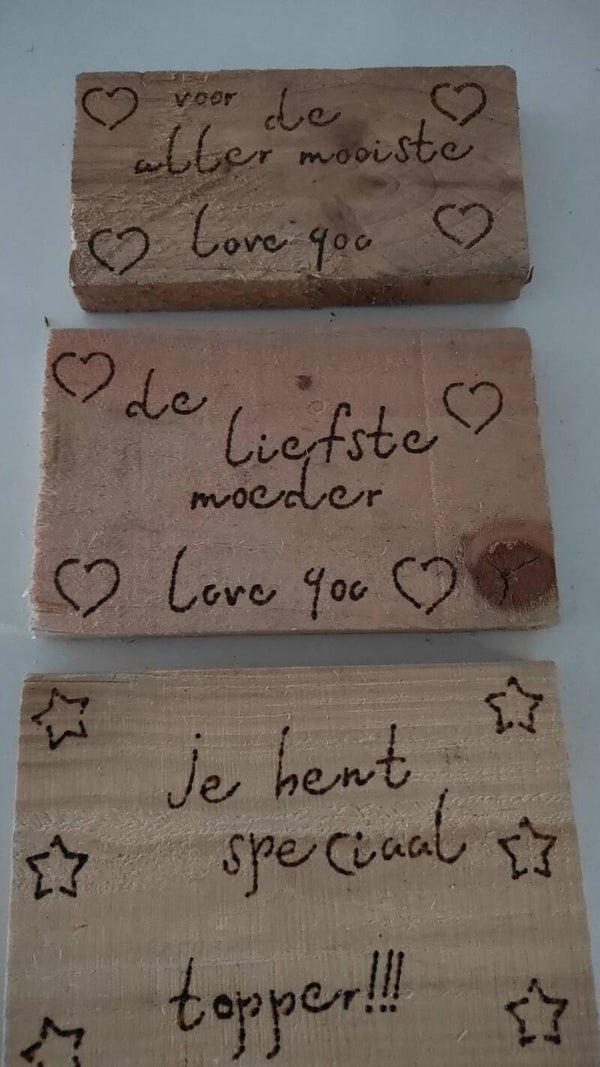 voor de
aller mooiste
love you
de
liefste
moeder
love you
je bent
speciaal
topper!!!